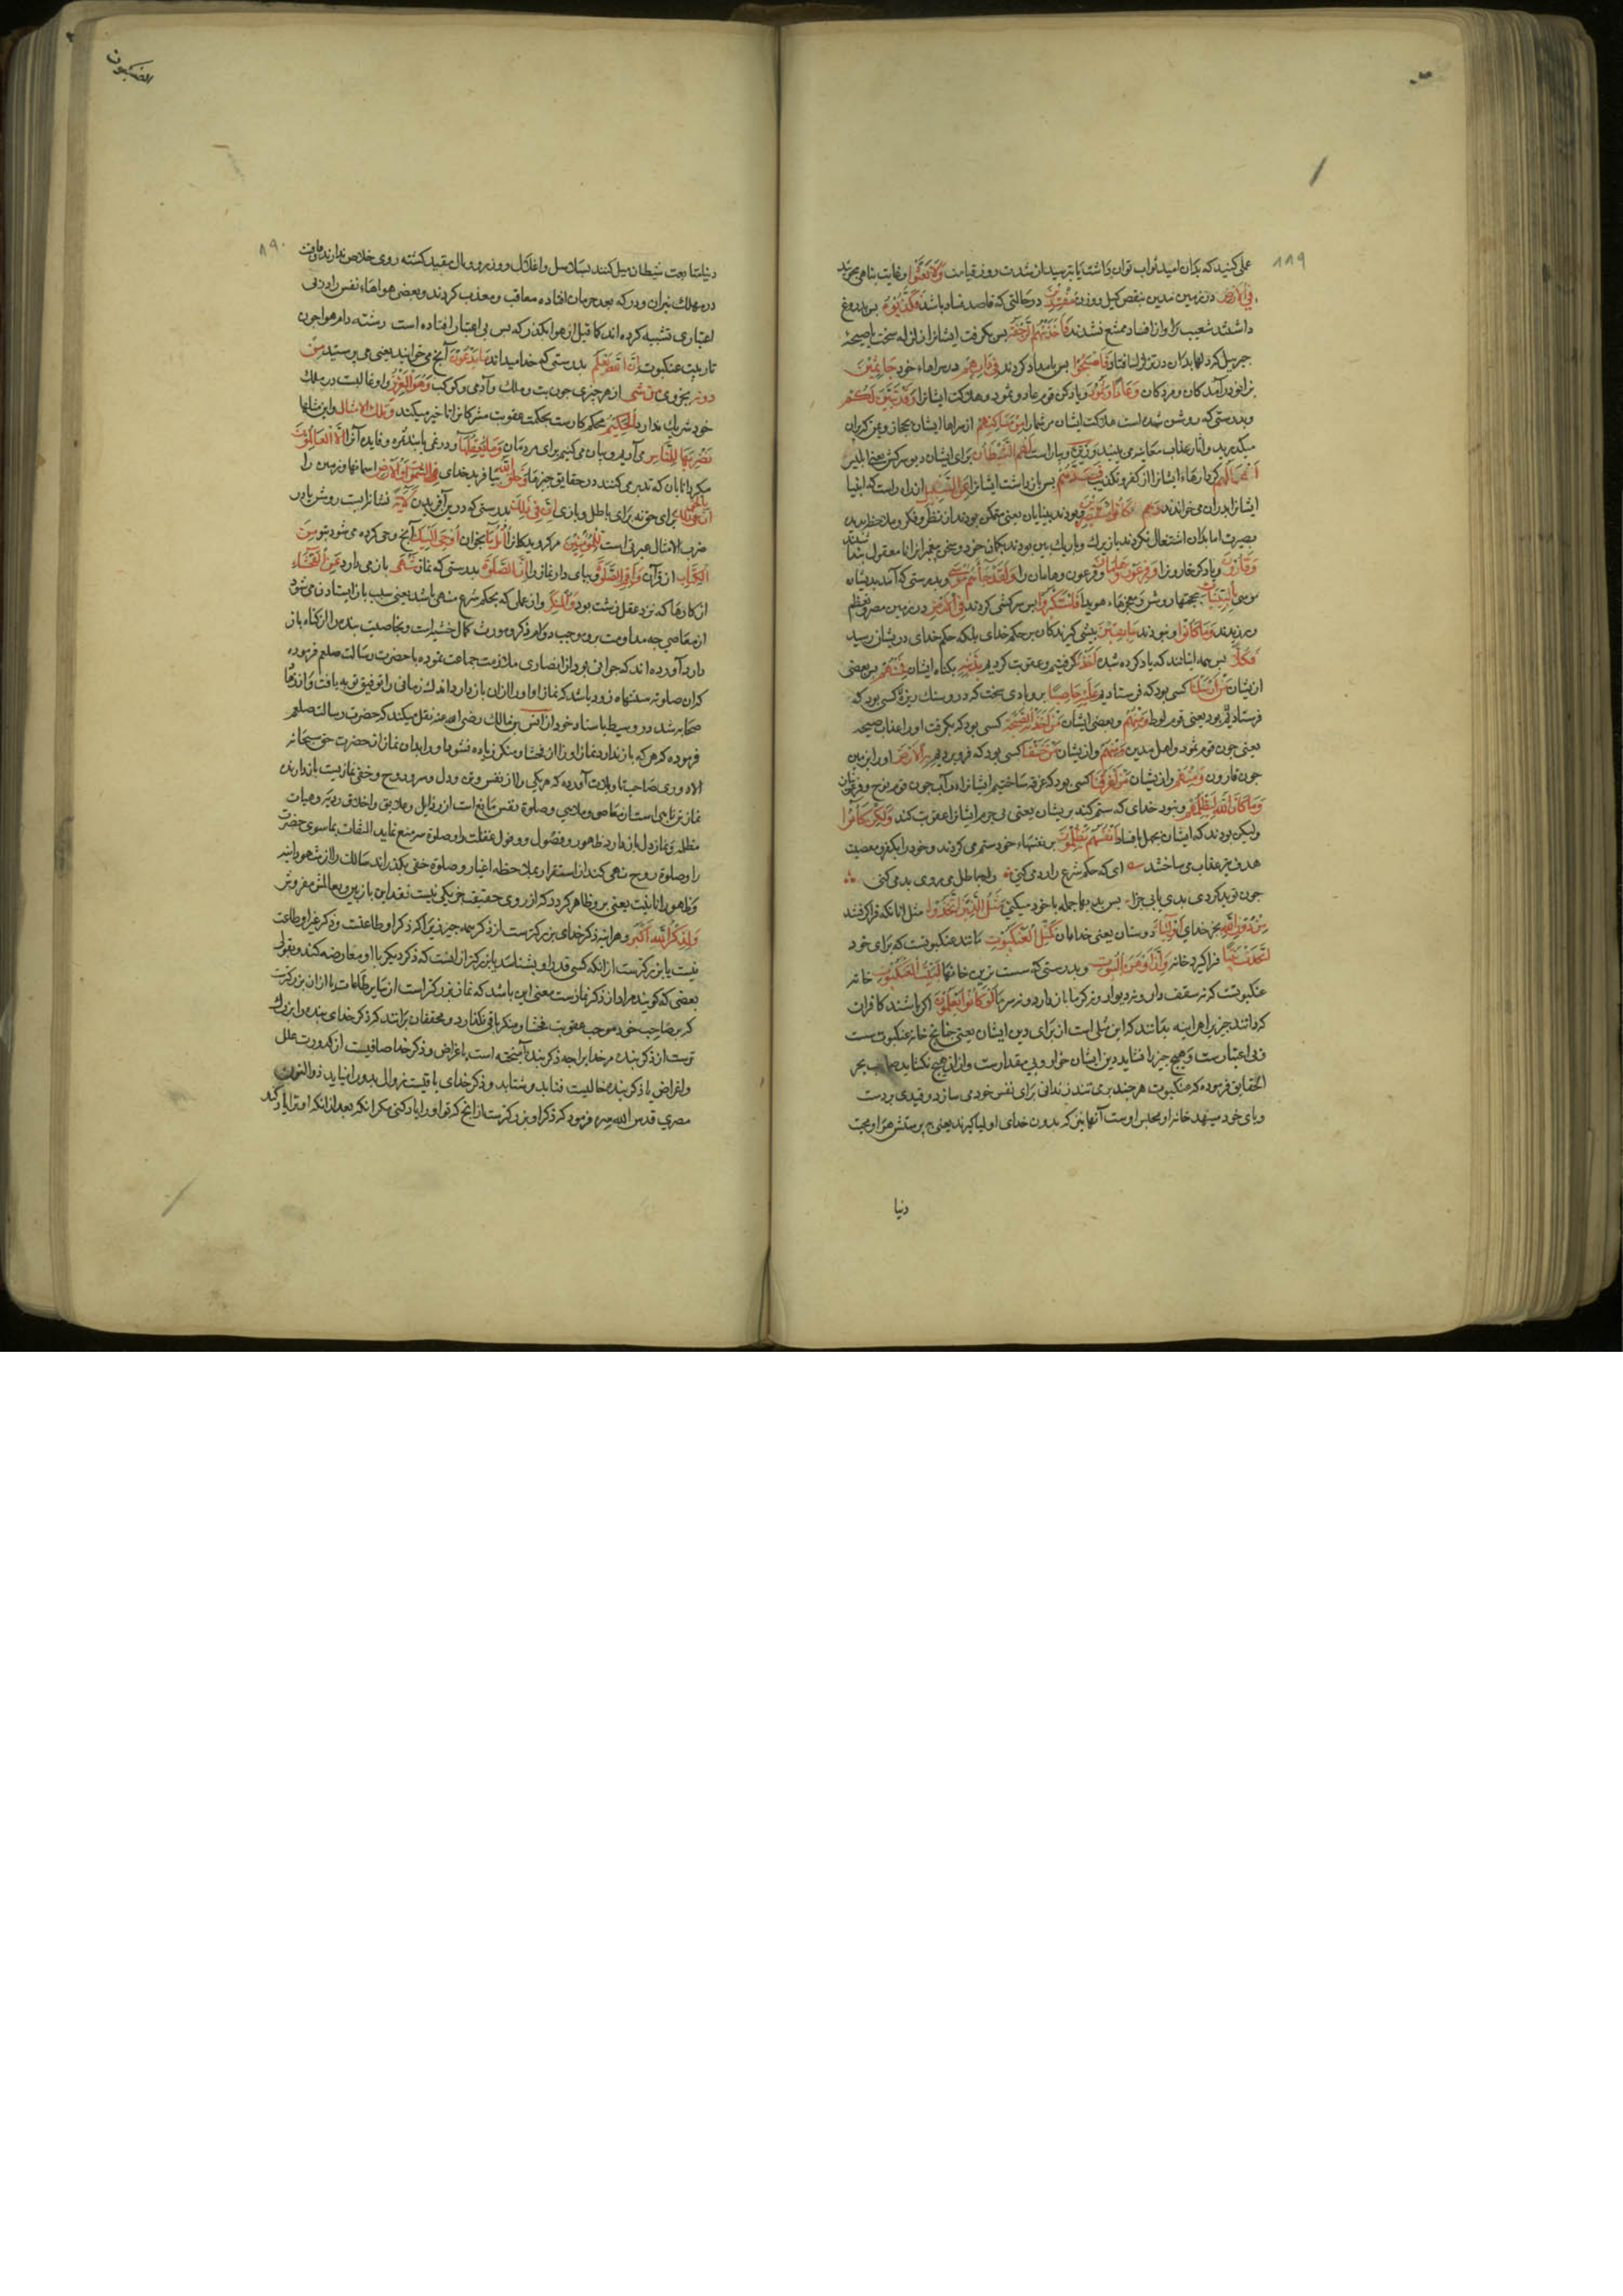 ۸۸۹
عملی کنید که بدان امید ثواب توان داشت یا بترسید از شدت روز قیامت وَلَا تَعْثَوْا و نهایت تباهی مجویید
فِی الْأَرْضِ در زمین مدین بنقص کیل و وزن مُفْسِدِینَ در حالتی که قاصد فساد باشید فَکَذَّبُوهُ پس بدروغ
داشتند شعیب را و از افساد ممتنع نشدند فَأَخَذَتْهُمُ الرَّجْفَةُ پس بگرفت ایشانرا زلزله سخت یا صیحه
جبرییل که دلها بدان در تزلزل افتاد فَأَصْبَحُوا پس بامداد کردند فِی دَارِهِمْ در سراهاء خود جَاثِمِینَ
بزانو درآمدکان و مردکان وَعَادًا وَثَمُودَ و یاد کن قوم عاد و ثمود و هلاکت ایشانرا وَقَدْ تَبَیَّنَ لَکُمْ
و بدرستی که روشن شده است هلاکت ایشان مر شما را مِنْ مَسَاکِنِهِمْ از سراهاء ایشان بحجاز و یمن که بران
میکذرید و آثار عذاب معاینه می بینید وَزَیَّنَ و بیاراست لَهُمُ الشَّیْطَانُ برای ایشان دیو سرکش یعنی ابلیس
أَعْمَالَهُمْ کردارهاء ایشانرا از کفر و تکذیب فَصَدَّهُمْ پس بازداشت ایشانرا عَنِ السَّبِیلِ از راه راست که انبیا
ایشانرا بدان می خواندند وَکَانُوا مُسْتَبْصِرِینَ و بودند بینایان یعنی متمکن بودند از نظر و فکر و ملاحظه بدیده
بصیرت اما بدان اشتغال نکردند یا زیرک و باریک بین بودند بکمان خود و سخن پیغمبرانرا نامعقول پنداشتند
وَقَارُونَ و یاد کن قارونرا وَفِرْعَوْنَ وَهَامَانَ و فرعون و هامان را وَلَقَدْ جَاءَهُمْ مُوسَی و بدرستی که آمد بدیشان
موسی بِالْبَیِّنَاتِ بحجتهاء روشن و معجزهاء هویدا فَاسْتَکْبَرُوا پس سرکشی کردند فِی الْأَرْضِ در زمین مصر و تعظم
ورزیدند وَمَا کَانُوا و نبودند سَابِقِینَ پیشی گیرندکان بر حکم خدای بلکه حکم خدای دریشان رسید
فَکُلًّا پس همه ایشانند که یاد کرده شده أَخَذْنَا گرفتیم و عقوبت کردیم بِذَنْبِهِ بکناه ایشان فَمِنْهُمْ پس بعضی
ازیشان مَنْ أَرْسَلْنَا کسی بود که فرستادیم عَلَیْهِ حَاصِبًا برو بادی سخت که درو سنک ریزه کسی بود که
فرستاد یم بود یعنی قوم لوط وَمِنْهُمْ و بعضی ایشان مَنْ أَخَذَتْهُ الصَّیْحَةُ کسی بود که بگرفت او را عذاب صیحه
یعنی چون قوم ثمود و اهل مدین وَمِنْهُمْ و ازیشان مَنْ خَسَفْنَا کسی بود که فرو بردیم بِهِ الْأَرْضَ او را بزمین
چون قارون وَمِنْهُمْ و ازیشان مَنْ أَغْرَقْنَا کسی بود که غرقه ساختیم ایشانرا در آب چون قوم نوح و فرعونیان
وَمَا کَانَ اللّٰهُ لِیَظْلِمَهُمْ و نبود خدای که ستم کند بریشان یعنی بی جرم ایشانرا عقوبت کند وَلَکِنْ کَانُوا
ولیکن بودند که ایشان بجهل یا فساد أَنْفُسَهُمْ یَظْلِمُونَ بر نفسهاء خود ستم می کردند و خود را بکفر و معصیت
هدف تیر عقاب می ساختند ای که حکم شرع را رد می کنی راه باطل می روی بد می کنی
چون تو بد کردی بدی یابی جزا پس بدیها جمله با خود میکنی مَثَلُ الَّذِینَ اتَّخَذُوا مثل آنانکه فراگرفتند
مِنْ دُونِ اللّٰهِ بجز خدای أَوْلِیَاءَ دوستان یعنی خدایان کَمَثَلِ الْعَنْکَبُوتِ مانند عنکبوتست که برای خود
اتَّخَذَتْ بَیْتًا فراگیرد خانه وَإِنَّ أَوْهَنَ الْبُیُوتِ و بدرستی که سست ترین خانها لَبَیْتُ الْعَنْکَبُوتِ خانه
عنکبوتست که نه سقف دارد و نه دیوار و نه گرما باز دارد و نه سرما لَوْ کَانُوا یَعْلَمُونَ اگر باشند کافران
که دانند چیزیرا هر آینه بدانند که این مثلی است از برای دین ایشان یعنی چنانچ خانه عنکبوت سست
و بی اعتبارست و هیچ چیز را نشاید دین ایشان خوار و بی مقدارست و از آن هیچ نکشاید صاحب بحر
الحقایق فرموده که عنکبوت هر چند بر می تند زندانی برای نفس خود می سازد و قیدی بر دست
و پای خود مینهد خانه او محبس اوست آنها نیز که بدون خدای اولیا گیرند یعنی پرستش هوا و محبت
دنیا
العنکبوت
۸۹۰
دنیا و متابعت شیطان میل کنند بسلاسل و اغلال و وزر و وبال مقید گشته روی خلاص ندارند و عاقبت
در مهلک نیران و درکه بعد حرمان افتاده معاقب و معذب گردند و بعضی هواهاء نفس را در بی
اعتباری تشبیه کرده اند کما قیل از هوا بکذر که بس بی اعتبار افتاده است رشته دام هوا چون
تار بیت عنکبوت إِنَّ اللّٰهَ یَعْلَمُ بدرستی که خدا میداند مَا یَدْعُونَ آنچ می خوانید یعنی می پرستید مِنْ
دُونِهِ بجز وی مِنْ شَیْءٍ از هر چیزی چون بت و ملک و آدمی و کوکب وَهُوَ الْعَزِیزُ و او غالبست در ملک
خود شریک ندارد الْحَکِیمُ محکم کارست بحکمت عقوبت مشرکانرا تاخیر میکند وَتِلْکَ الْأَمْثَالُ و این مثلها
نَضْرِبُهَا لِلنَّاسِ می آوریم و بیان می کنیم برای مردمان وَمَا یَعْقِلُهَا و در نمی یابند ثمره و فایده آنرا إِلَّا الْعَالِمُونَ
مکر دانایان که تدبر می کنند در حقایق چیزها خَلَقَ اللّٰهُ بیافرید خدای السَّمٰوَاتِ وَالْأَرْضَ آسمانها و زمین را
بِالْحَقِّ برای حق نه برای باطل و بازی إِنَّ فِی ذٰلِکَ بدرستی که درین آفریدن لَآیَةً نشانه ایست روشن یا در
ضرب الامثال عبرتی است لِلْمُؤْمِنِینَ مر گرویدکانرا اُتْلُ مَا بخوان أُوحِیَ إِلَیْکَ آنچ وحی کرده می شود بتو مِنَ
الْکِتَابِ از قرآن وَأَقِمِ الصَّلٰوةَ و بپای دار نماز را إِنَّ الصَّلٰوةَ بدرستی که نماز تَنْهٰی باز می دارد عَنِ الْفَحْشَاءِ
از کارها که نزد عقل زشت بود وَالْمُنْکَرِ و از عملی که بحکم شرع منهی باشد یعنی سبب باز ایستادن می شود
از معاصی چه مداومت برو موجب دوام ذکر و مورث کمال خشیتست و بخاصیت بنده را از کناه باز
دارد آورده اند که جوانی بود از انصاری ملازمت جماعت نموده با حضرت رسالت صلعم فرموده
که ان صلوته ستنهاه زود باشد که نماز او او را از ان باز دارد اندک زمانی را توفیق توبه یافت و از زهاد
صحابه شد و در وسیط باسناد خود از انس بن مالک رضی الله عنه نقل میکند که حضرت رسالت صلعم
فرموده که هر که باز ندارد نماز او را از فحشا و منکر زیاده نشود او را بدان نماز از حضرت حق سبحانه
الا دوری صاحب تاویلات آورده که هر یکی را از نفس و تن و دل و سر و روح و خفی نمازیست باز دارنده
نماز تن ناهی است از معاصی و ملاهی و صلوة نفس مانع است از رذایل و علایق و اخلاق ردیه و هیات
مظلمه و نماز دل باز دارد از ظهور و فضول و وفول غفلت را و صلوة سر منع نماید التفات بماسوی حضرت
را و صلوة روح نهی کند از استقرار بملاحظه اغیار و صلوة خفی بکذراند سالک را از شهود اثنیه
و ظهور انانیت یعنی برو ظاهر کردد که از روی حقیقت جز یکی نیست نقد این
وَلَذِکْرُ اللّٰهِ أَکْبَرُ و هر آینه ذکر خدای بزرکترست از ذکر همه چیز زیراکه ذکر او طاعتست و ذکر غیر او طاعت
نیست یا بزرکترست از انکه کسی قدر او بشناسد یا بزرکتر از انست که ذکر دیکر با او معارضه کند و بقولی
بعضی که کویند مراد از ذکر نمازست معنی این باشد که نماز بزرکتر است از سایر طاعات یا از ان بزرکترست
که بر صاحب خود موجب عقوبت فحشا و منکر باقی نکذارد و محققان برانند که ذکر خدای بنده را بزرک
ترست از ذکر بنده مر خدایرا چه ذکر بنده آمیخته است باغراض و ذکر خدا صافیست از کدورت علل
و اغراض یا ذکر بنده حالیست فناپذیر و ذکر خدای باقیست زوال بدو راه نیابد ذوالنون
مصری قدس الله سره فرمود که ذکر او بزرکترست از آنچ که تو او را یاد کنی مکر آنکه بعد از آنکه او ترا یاد کند